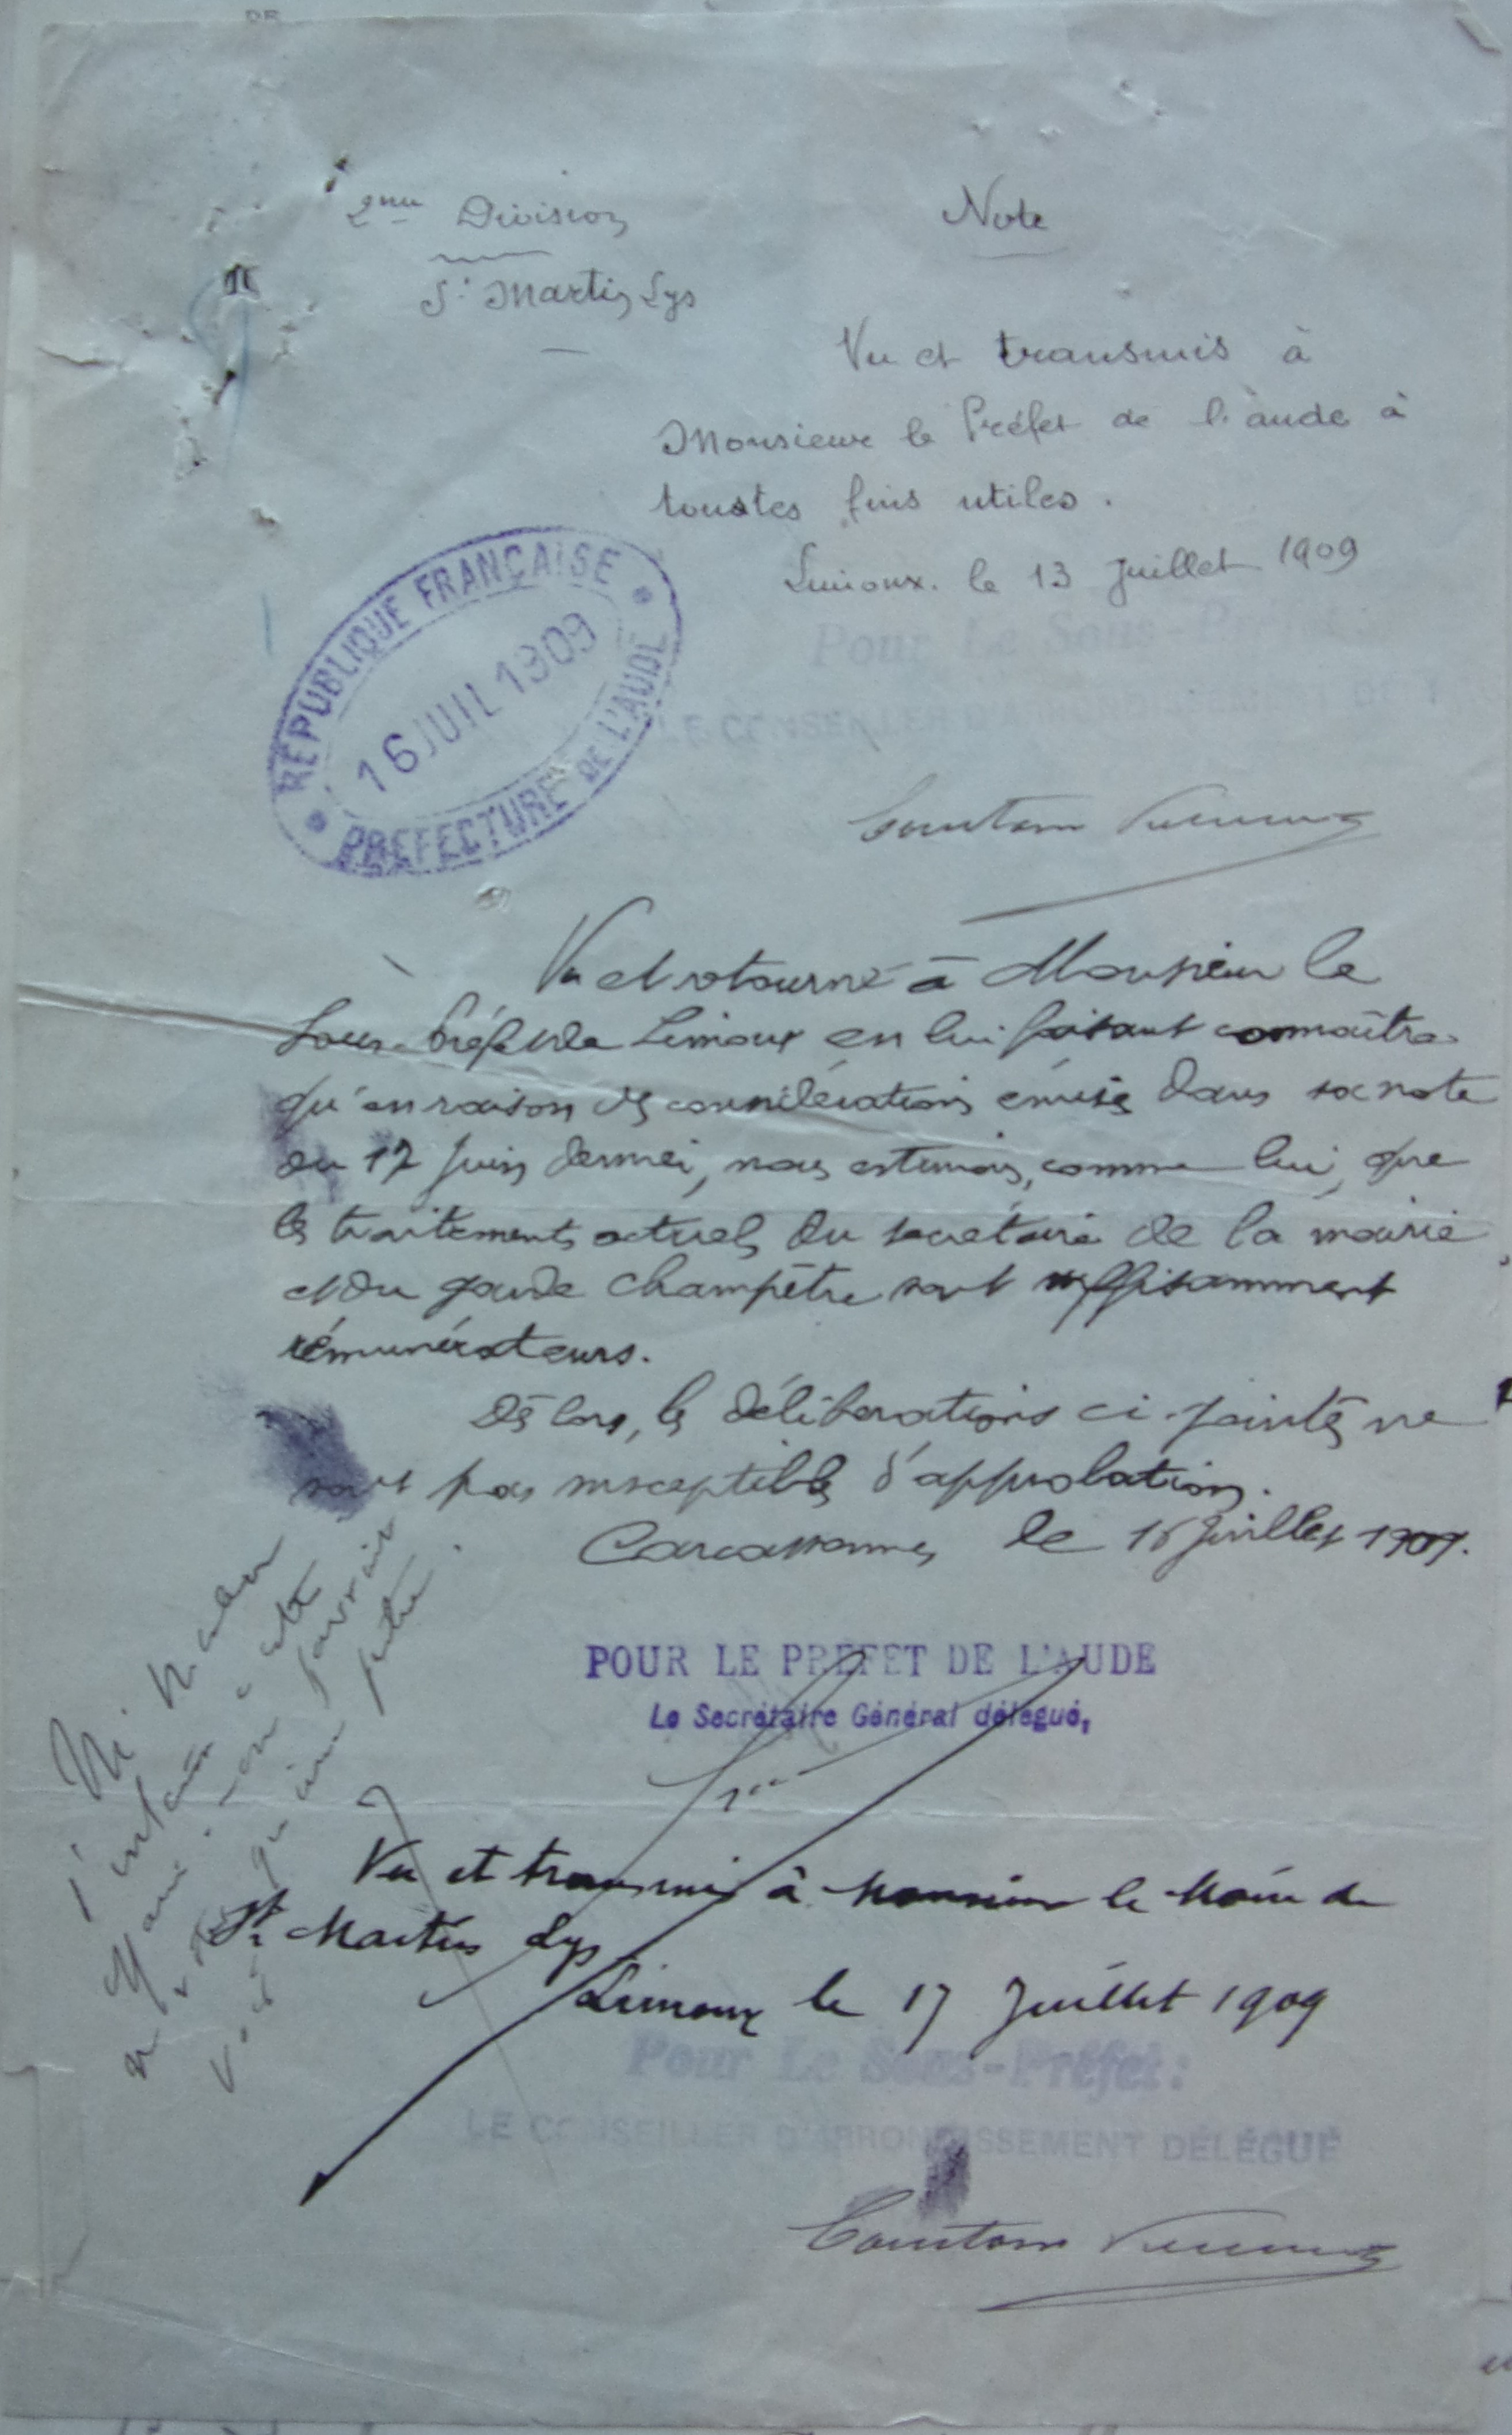 2eme Division
St Martin Lys
Note
Vu et transmis à
Monsieur le Préfet de l'aude à
toustes fins utiles.
Limoux. le 13 Juillet 1909
Pour Le Sous-Préfet:
LE CONSEILLER D'ARRONDISSEMENT DE
REPUBLIQUE FRANÇAISE
16 JUIL 1909
PREFECTURE DE L'AUDE
Vu et retourné à Monsieur le
Sous-Préfet de Limoux en lui faisant connaître
qu'en raison des considérations émises dans sa note
du 17 Juin dernier, nous estimons, comme lui, que
les traitements actuels du secrétaire de la mairie
et du garde champêtre sont suffisamment
rémunérateurs.
Dès lors, les délibérations ci-jointes ne
sont pas susceptibles d'approbation.
Carcassonne, le 16 Juillet 1909.
POUR LE PREFET DE L'AUDE
Le Secrétaire Général délégué,
Vu et transmis à Monsieur le Maire de
St Martin Lys
Limoux le 17 Juillet 1909
Pour Le Sous-Préfet:
LE CONSEILLER D'ARRONDISSEMENT DÉLÉGUÉ